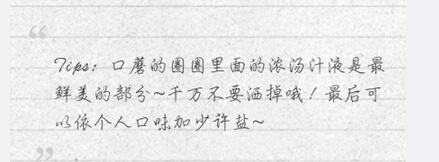 Tips：口蘑的圈圈里面的浓汤汁液是最
鲜美的部分~千万不要洒掉哦！最后可
以依个人口味加少许盐~